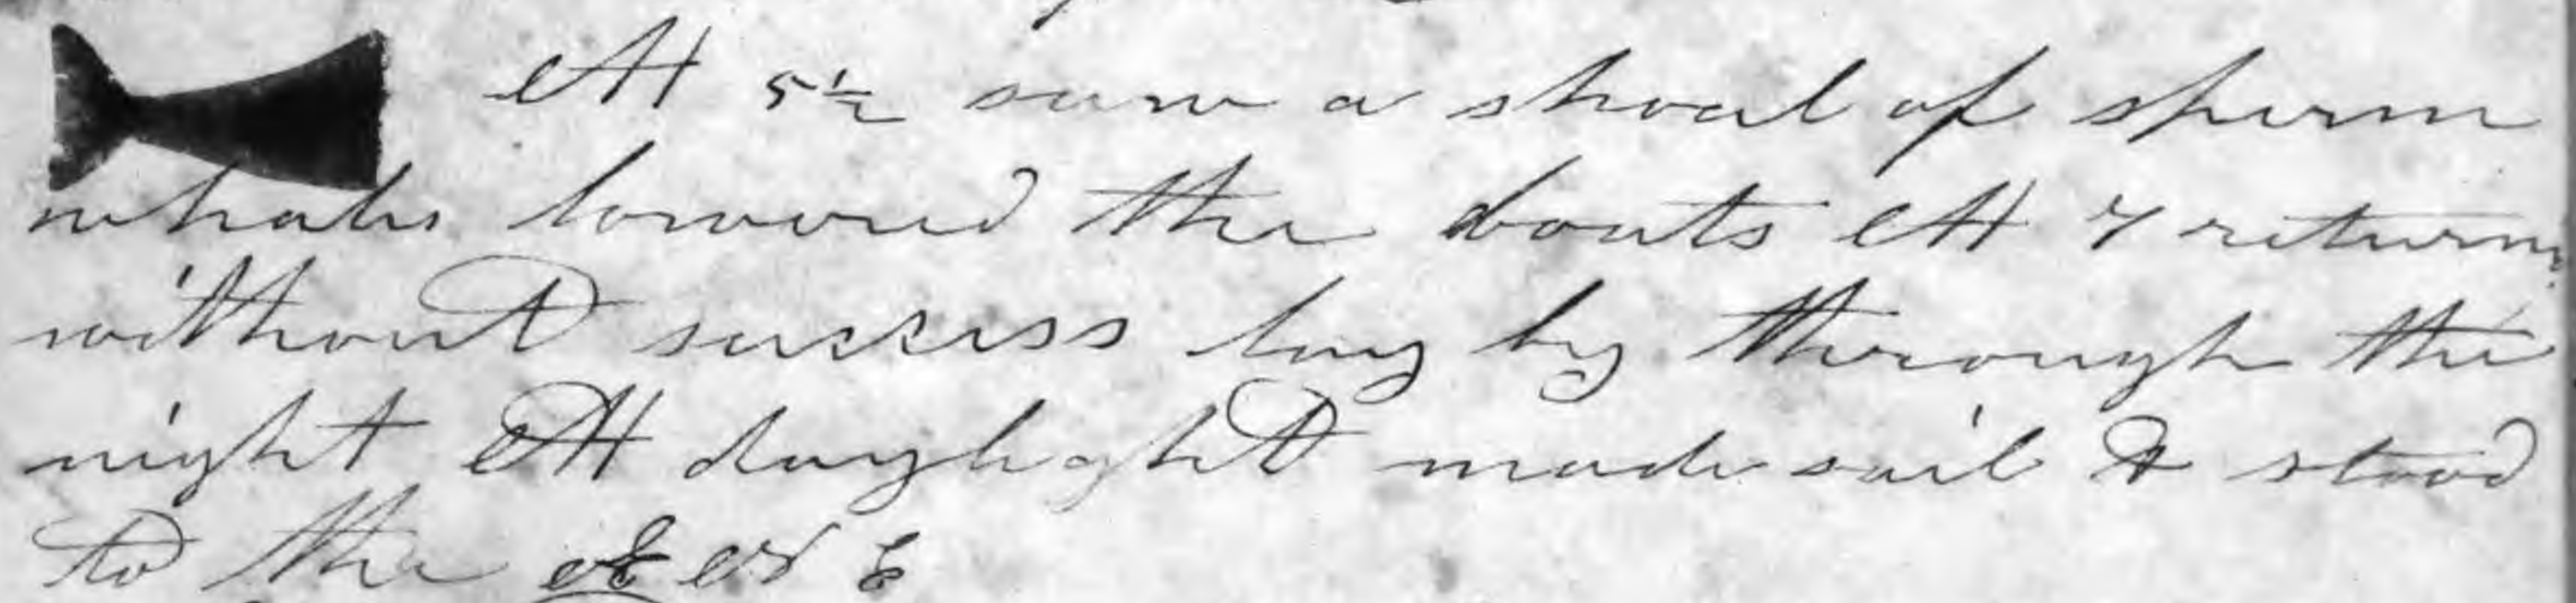 At 5½ saw a shoal of sperm
whales lowered the boats At 7 return
without success lay by through the
night At daylight made sail & stood
to the N E